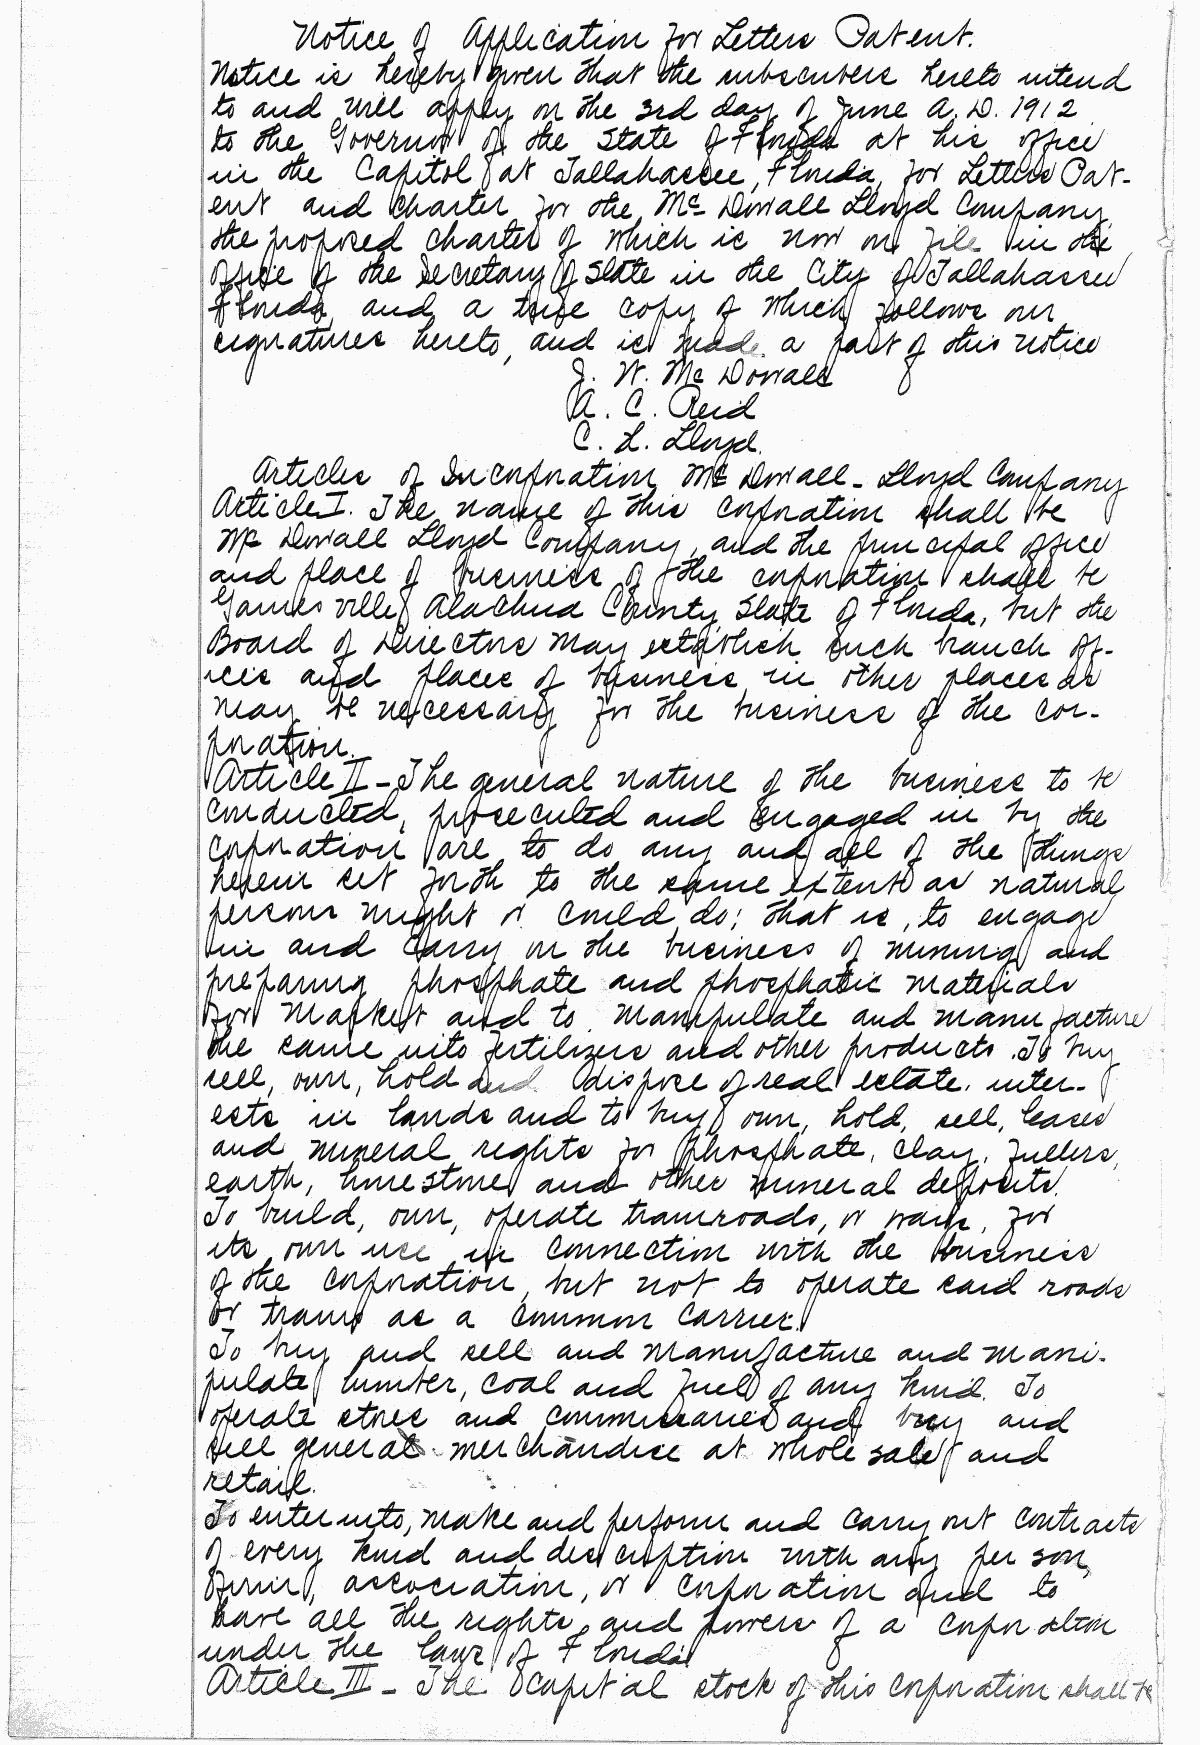 Notice of Application for Letters Patent.
Notice is hereby given that the subscribers hereto intend
to and will apply on the 3rd day of June A.D. 1912
to the Governor of the State of Florida at his office
in the Capitol at Tallahassee, Florida, for Letters Pat-
ent and charter for the Mc Dowall Lloyd Company
the proposed charter of which is now on file in the
office of the Secretary of State in the City of Tallahassee
Florida, and a true copy of which follows our
signatures hereto, and is made a part of this notice
J. W. Mc Dowall
A. C. Reid
C. L. Lloyd.
Articles of Incorporation Mc Dowall - Lloyd Company
Article I. The name of this corporation shall be
Mc Dowall Lloyd Company, and the principal office
and place of business of the corporation shall be
Gainesville, Alachua County, State of Florida, but the
Board of Directors may establish such branch of-
ices and places of business in other places as
may be necessary for the business of the cor-
poration.
Article II - The general nature of the business to be
conducted, prosecuted and engaged in by the
corporation are to do any and all of the things
herein set forth to the same extent as natural
persons might or could do; that is, to engage
in and carry on the business of mining and
preparing phosphate and phosphatic materials
for market and to manipulate and manufacture
the same into fertilizers and other products. To buy
sell, own, hold and dispose of real estate, inter-
ests in lands and to buy, own, hold, sell, leases
and mineral rights for phosphate, clay, fullers,
earth, limestone, and other mineral deposits.
To build, own, operate tramroads, or ways, for
its own use in connection with the business
of the corporation, but not to operate said roads
or trams as a common carrier.
To buy and sell and manufacture and mani-
pulate lumber, coal and fuel of any kind. To
operate stores and commissaries and buy and
sell general merchandise at whole sale and
retail.
To enter into, make and perform and carry out contracts
of every kind and description with any per son,
firm, association, or corporation and to
have all the rights and powers of a corporation
under the laws of Florida
Article III - The capital stock of this corporation shall be